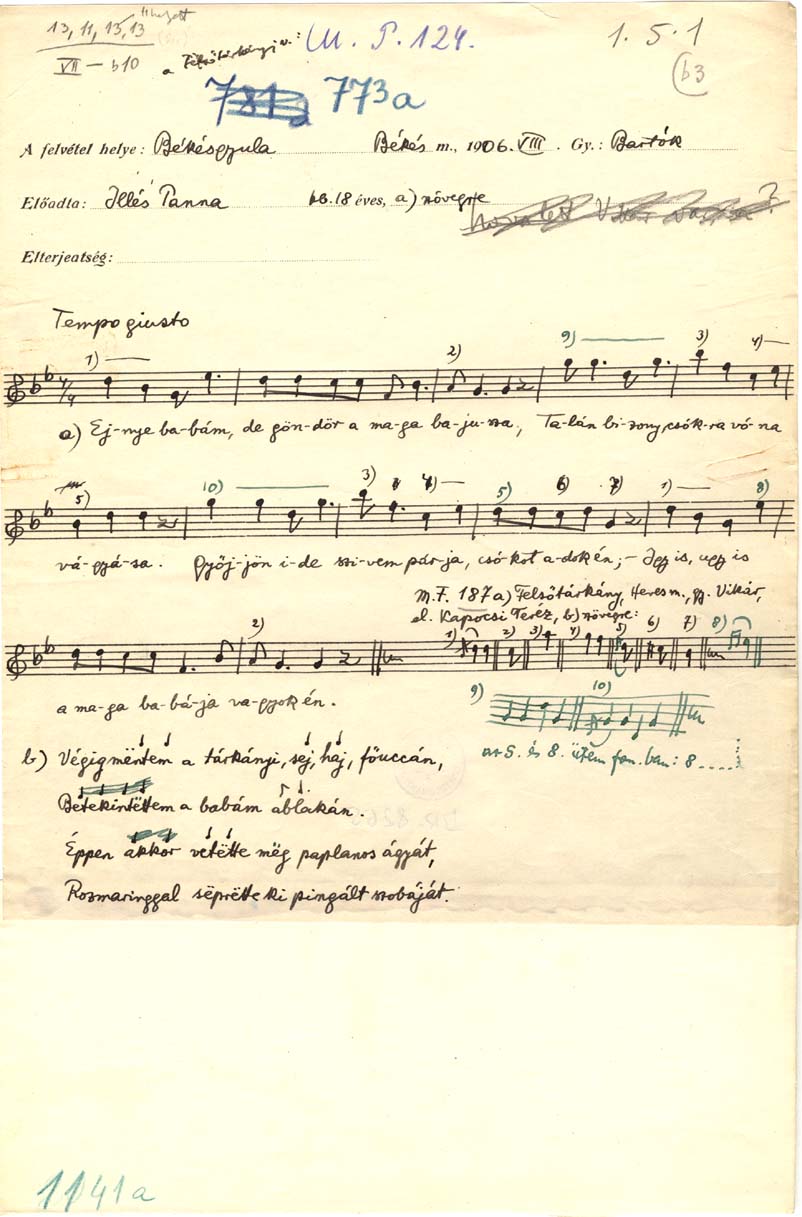 13, 11, 15, 13
VII — b10
a Felsőtárkányi v.:
M. F. 124.
1. 5. 1
b3
773a
A felvétel helye: Békésgyula Békés m., 1906. VIII. Gy.: Bartók
Előadta: Illés Panna kb. 18 éves, a) szövegre
Elterjeatség:
Tempo giusto
1) 2) 9) 3) 4)
a) Ej-nye ba-bám, de gön-dör a ma-ga ba-ju-sza, Ta-lán bi-zony, csók-ra vó-na
5) 10) 3) 4) 5) 6) 7) 1) 8)
vá-gyá-sa. Gyöj-jön i-de szi-vem pár-ja, csó-kot a-dok én; – Igy is, ugy is
M.F. 187a) Felsőtárkány, Heves m., gy. Vikár,
el. Kapocsi Teréz, b) szövegre:
2) 1) 2) 3) 4) 5) 6) 7) 8)
a ma-ga ba-bá-ja va-gyok én.
9) 10)
az 5. és 8. ütem fon. ban: 8
b) Végigmëntem a tárkányi, sej, haj, főuccán,
Betekintëttem a babám ablakán.
Éppen akkor vetëtte mëg paplanos ágyát,
Rozmaringgal sëprëtte ki pingált szobáját.
1141a